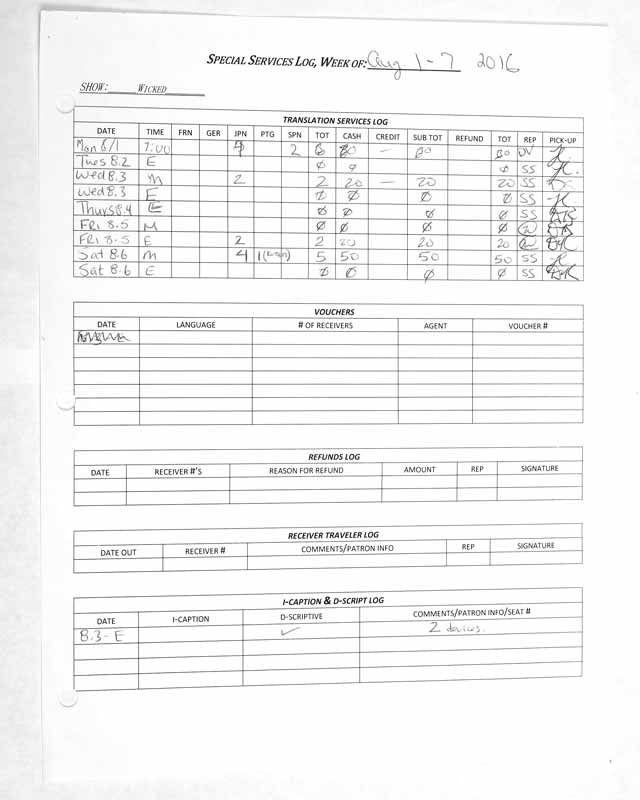 SPECIAL SERVICES LOG, WEEK OF: Aug 1-7 2016
SHOW: WICKED
TRANSLATION SERVICES LOG
DATE TIME FRN GER JPN PTG SPN TOT CASH CREDIT SUB TOT REFUND TOT REP PICK-UP
Mon 8/1 7:00 4 2 6 — DV
Tues 8.2 E Ø Ø Ø SS
Wed 8.3 M 2 2 20 — 20 20 SS
Wed 8.3 E Ø Ø Ø Ø SS
Thurs 8.4 E Ø Ø Ø Ø SS
FRI 8.5 M Ø Ø Ø Ø
FRI 8.5 E 2 2 20 20 20
Sat 8.6 M 4 1 5 50 50 50 SS
Sat 8.6 E Ø Ø Ø Ø SS
VOUCHERS
DATE LANGUAGE # OF RECEIVERS AGENT VOUCHER #
REFUNDS LOG
DATE RECEIVER #'S REASON FOR REFUND AMOUNT REP SIGNATURE
RECEIVER TRAVELER LOG
DATE OUT RECEIVER # COMMENTS/PATRON INFO REP SIGNATURE
I-CAPTION & D-SCRIPT LOG
DATE I-CAPTION D-SCRIPTIVE COMMENTS/PATRON INFO/SEAT #
8.3- E ✓ 2 devices.